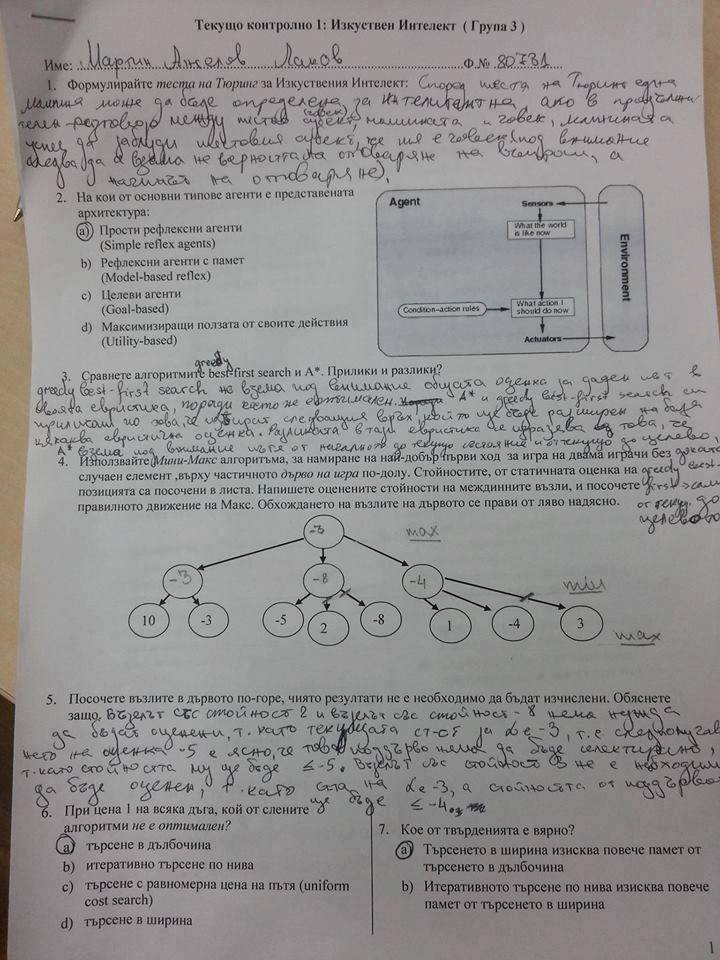 Текущо контролно 1: Изкуствен Интелект ( Група 3 )
Име: Мартин Ангелов Лаков Ф.№ 80731
1. Формулирайте теста на Тюринг за Изкуствения Интелект: Според теста на Тюринг една
машина може да бъде определена за интелигентна ако в
разговор между тестов субект, машината и човек, машината
успее да заблуди тестовия субект, че тя е човек (под внимание
следва да се взема не верността на отговаряне на въпроси, а
начинът на отговаряне).
2. На кои от основни типове агенти е представената
архитектура:
a) Прости рефлексни агенти
(Simple reflex agents)
b) Рефлексни агенти с памет
(Model-based reflex)
c) Целеви агенти
(Goal-based)
d) Максимизиращи ползата от своите действия
(Utility-based)
Agent
Sensors
What the world
is like now
Condition-action rules
What action I
should do now
Actuators
Environment
greedy
3. Сравнете алгоритмите best-first search и A*. Прилики и разлики?
greedy best-first search не взема под внимание общата оценка за даден път в
своята евристика, поради което не е оптимален. A* и greedy best-first search си
приличат по това, че избират следващия връх, който ще бъде разширен на база
някаква евристична оценка. Разликата в тази евристика се изразява в това, че
A* взема под внимание пътя от началното до текущо състояние и от текущо до целево,
докато
4. Използвайте Мини-Макс алгоритъма, за намиране на най-добър първи ход за игра на двама играчи без
случаен елемент ,върху частичното дърво на игра по-долу. Стойностите, от статичната оценка на greedy best-
позицията са посочени в листа. Напишете оценените стойности на междинните възли, и посочете first само
правилното движение на Макс. Обхождането на възлите на дървото се прави от ляво надясно. от текущ. до
целево
-3 max
-3 -8 -4 min
10 -3 -5 2 -8 1 -4 3 max
5. Посочете възлите в дървото по-горе, чиято резултати не е необходимо да бъдат изчислени. Обяснете
защо. Възелът със стойност 2 и възелът със стойност -8 няма нужда
да бъдат оценени, т. като текущата ст-ст за α е -3, т.е. след
на оценка -5 е ясно, че това поддърво няма да бъде селектирано,
т. като стойността му ще бъде ≤ -5. Възелът със стойност 3 не е необходимо
да бъде оценен, т. като на α е -3, а стойността от поддървото
ще бъде ≤ -4.
6. При цена 1 на всяка дъга, кой от слените
алгоритми не е оптимален?
a) търсене в дълбочина
b) итеративно търсене по нива
c) търсене с равномерна цена на пътя (uniform
cost search)
d) търсене в ширина
7. Кое от твърденията е вярно?
a) Търсенето в ширина изисква повече памет от
търсенето в дълбочина
b) Итеративното търсене по нива изисква повече
памет от търсенето в ширина
1